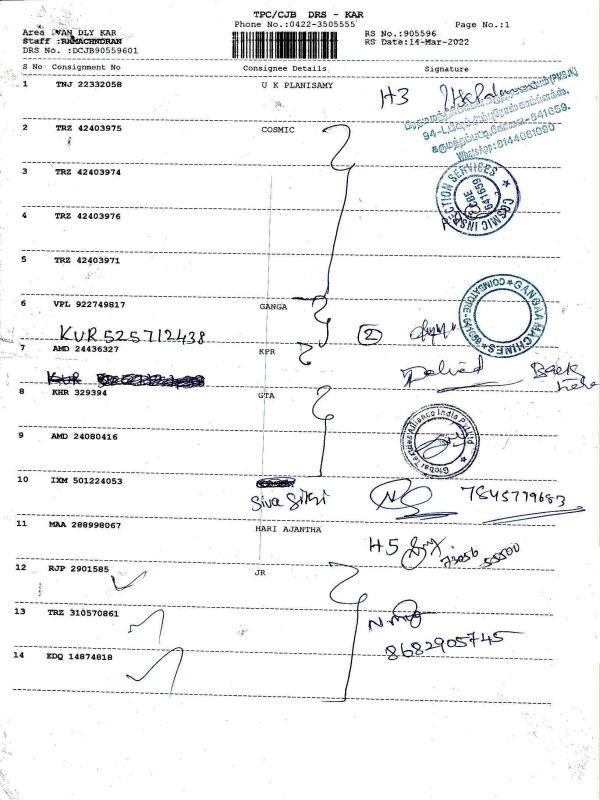 TPC/CJB DRS - KAR
Phone No.:0422-3505555 Page No.:1
Area :VAN DLY KAR RS No.:905596
Staff :RAMACHNDRAN RS Date:14-Mar-2022
DRS No. :DCJB90559601
S No Consignment No Consignee Details Signature
1 TNJ 22332058 U K PLANISAMY H3
94-L,
641659.
WhatsApp: 8144061090
2 TRZ 42403975 COSMIC
3 TRZ 42403974
COSMIC INSPECTION SERVICES
CBE
641659
4 TRZ 42403976
5 TRZ 42403971
6 VPL 922749817 GANGA
GANGAA MACHINES
COIMBATORE-641659
KUR525712438 2
7 AMD 24436327 KPR
KUR
8 KHR 329394 GTA
9 AMD 24080416
Global Textiles Alliance India Pvt Ltd
10 IXM 501224053
Siva Sikri 7845779683
11 MAA 288998067 HARI AJANTHA
H5 73056 55500
12 RJP 2901585 JR
13 TRZ 310570861
8682905745
14 EDQ 14874818